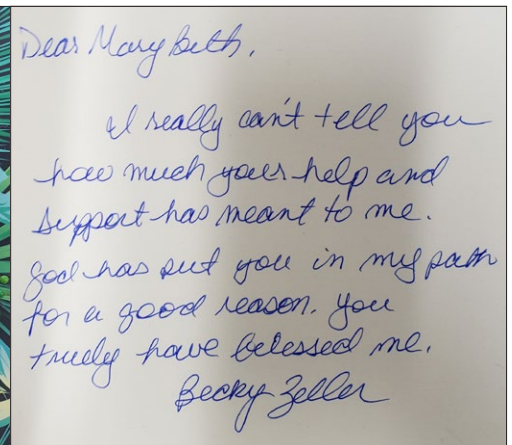 Dear Mary Beth,
I really can't tell you
how much your help and
support has meant to me.
God has put you in my path
for a good reason. You
truely have blessed me.
Becky Zeller